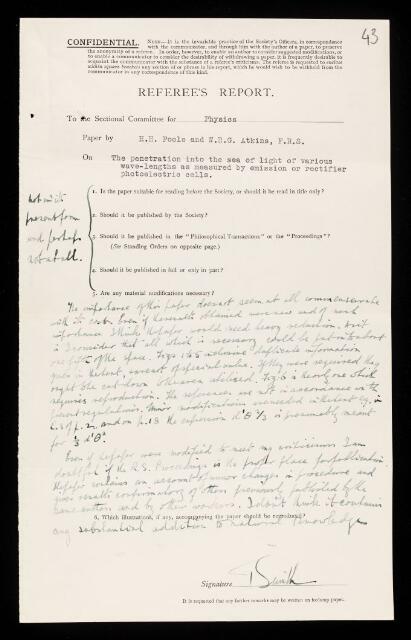 43
CONFIDENTIAL. NOTE.—It is the invariable practice of the Society's Officers, in correspondence
with the communicator, and through him with the author of a paper, to preserve
the anonymity of a referee. In order, however, to enable an author to consider suggested modifications, or
to enable a communicator to consider the desirability of withdrawing a paper, it is frequently desirable to
acquaint the communicator with the substance of a referee's criticisms. The referee is requested to enclose
within square brackets any section of or phrase in his report, which he would wish to be withheld from the
communicator in any correspondence of this kind.
REFEREE'S REPORT.
To the Sectional Committee for Physics
Paper by H.H. Poole and W.R.G. Atkins, F.R.S.
On The penetration into the sea of light of various
wave-lengths as measured by emission or rectifier
photoelectric cells.
1. Is the paper suitable for reading before the Society, or should it be read in title only?
2. Should it be published by the Society?
3. Should it be published in the "Philosophical Transactions" or the "Proceedings"?
(See Standing Orders on opposite page.)
4. Should it be published in full or only in part?
not in its
present form
and perhaps
not at all.
5. Are any material modifications necessary?
The importance of this paper does not seem at all commensurate
with its cost. Even if the results obtained were new and of much
importance I think the paper would need heavy reduction, and it
is possible that all which is necessary could be put into about
of the space. Figs 1 & 5 inclusive duplicate information
in the text, is not of special value. If they were required they
ought to be cut down otherwise. Fig 6 is hardly one which
requires reproduction. The references are not in accordance with
present regulations. Minor modifications are needed in the text e.g. in
and on p. 18 the expression is presumably meant
for
Even if the paper were modified to meet my criticisms I am
doubtful if the R.S. Proceedings is the proper place for publication.
The paper contains an account of minor changes in procedure and
gives results confirmatory of others previously published by the
same authors and by other workers. I don't think it contains
any substantial addition to natural knowledge
6. Which illustrations, if any, accompanying the paper should be reproduced?
Signature T Smith
It is requested that any further remarks may be written on foolscap paper.